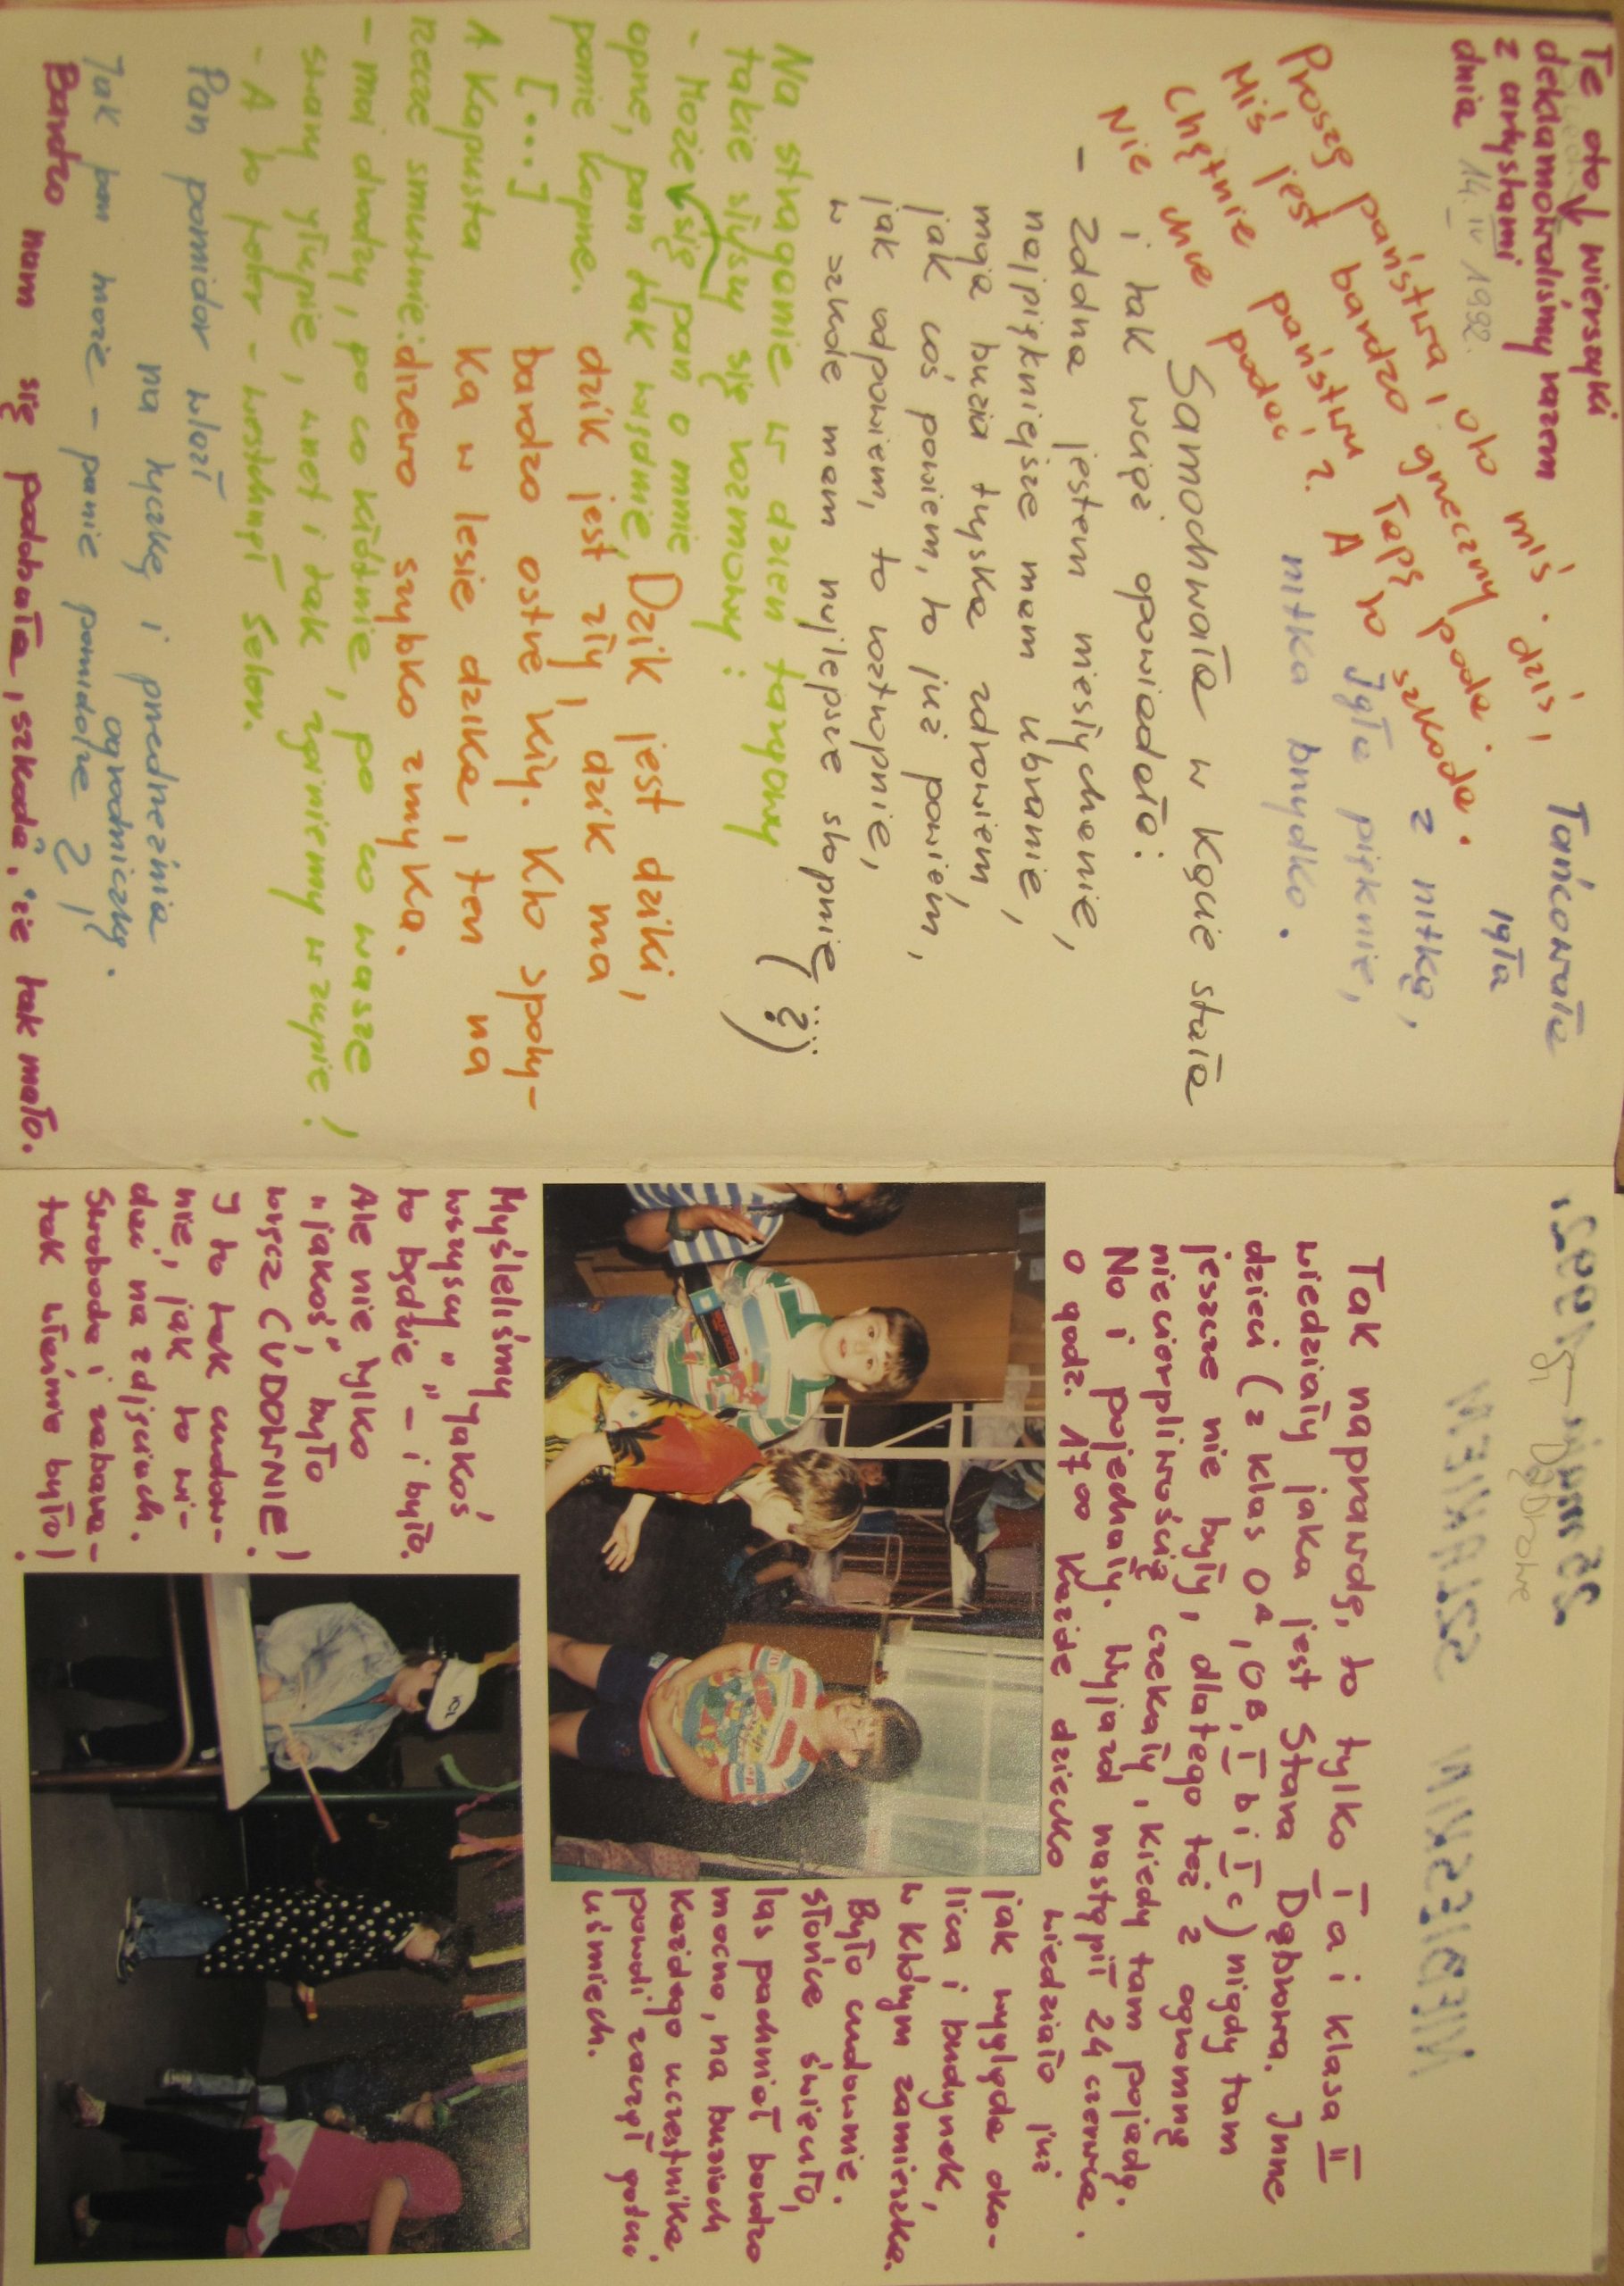 Te oto wierszyki
deklamowaliśmy razem
z artystami
dnia 14. IV 1992.
Proszę państwa, oto miś.
Miś jest bardzo grzeczny dziś,
Chętnie państwu łapę poda.
Nie chce podać? A to szkoda.
Tańcowała
igła
z nitką,
Igła pięknie,
nitka brzydko.
Samochwała w kącie stała
i tak wciąż opowiadała:
- Zdolna jestem niesłychanie,
najpiękniejsze mam ubranie,
moja buzia tryska zdrowiem,
jak coś powiem, to już powiem,
jak odpowiem, to roztropnie,
w szkole mam najlepsze stopnie (?)
Na straganie w dzień targowy
takie słyszy się rozmowy:
- Może się pan o mnie
oprze, pan tak więdnie,
panie koprze.
[...]
A Kapusta
rzecze smutnie:
- moi drodzy, po co kłótnie, po co wasze
swary głupie, wnet i tak zginiemy w zupie!
- A to feler - westchnął seler.
Dzik jest dziki,
dzik jest zły, dzik ma
bardzo ostre kły. Kto spoty-
ka w lesie dzika, ten na
drzewo szybko zmyka.
Pan pomidor wlazł
na tyczkę i przedrzeźnia
ogrodniczkę.
Jak pan może - panie pomidorze ?!
Bardzo nam się podobała, szkoda, że tak mało.
Tak naprawdę, to tylko I a i klasa II
wiedziały jaka jest Stara Dąbrowa. Inne
dzieci (z klas 0A, 0B, I b i I c) nigdy tam
jeszcze nie były, dlatego też z ogromną
niecierpliwością czekały, kiedy tam pojadą.
No i pojechały. Wyjazd nastąpił 24 czerwca.
o godz. 17 00 Każde dziecko wiedziało już
jak wygląda oko-
lica i budynek,
w którym zamieszka.
Było cudownie.
Słońce świeciło,
las pachniał bardzo
mocno, na buziach
każdego uczestnika
powoli zaczął gościć
uśmiech.
Myśleliśmy
wszyscy "jakoś
to będzie" - i było.
Ale nie tylko
"jakoś", było
wręcz CUDOWNIE!
I to tak cudow-
nie, jak to wi-
dać na zdjęciach.
Swoboda i zabawa -
tak właśnie było!